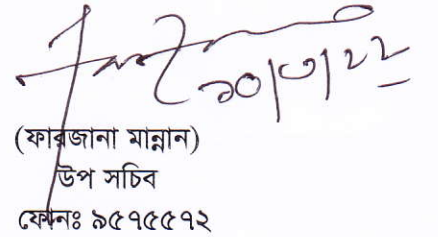 ১০/৩/২২
(ফারজানা মান্নান)
উপ সচিব
ফোনঃ ৯৫৭৫৫৭২